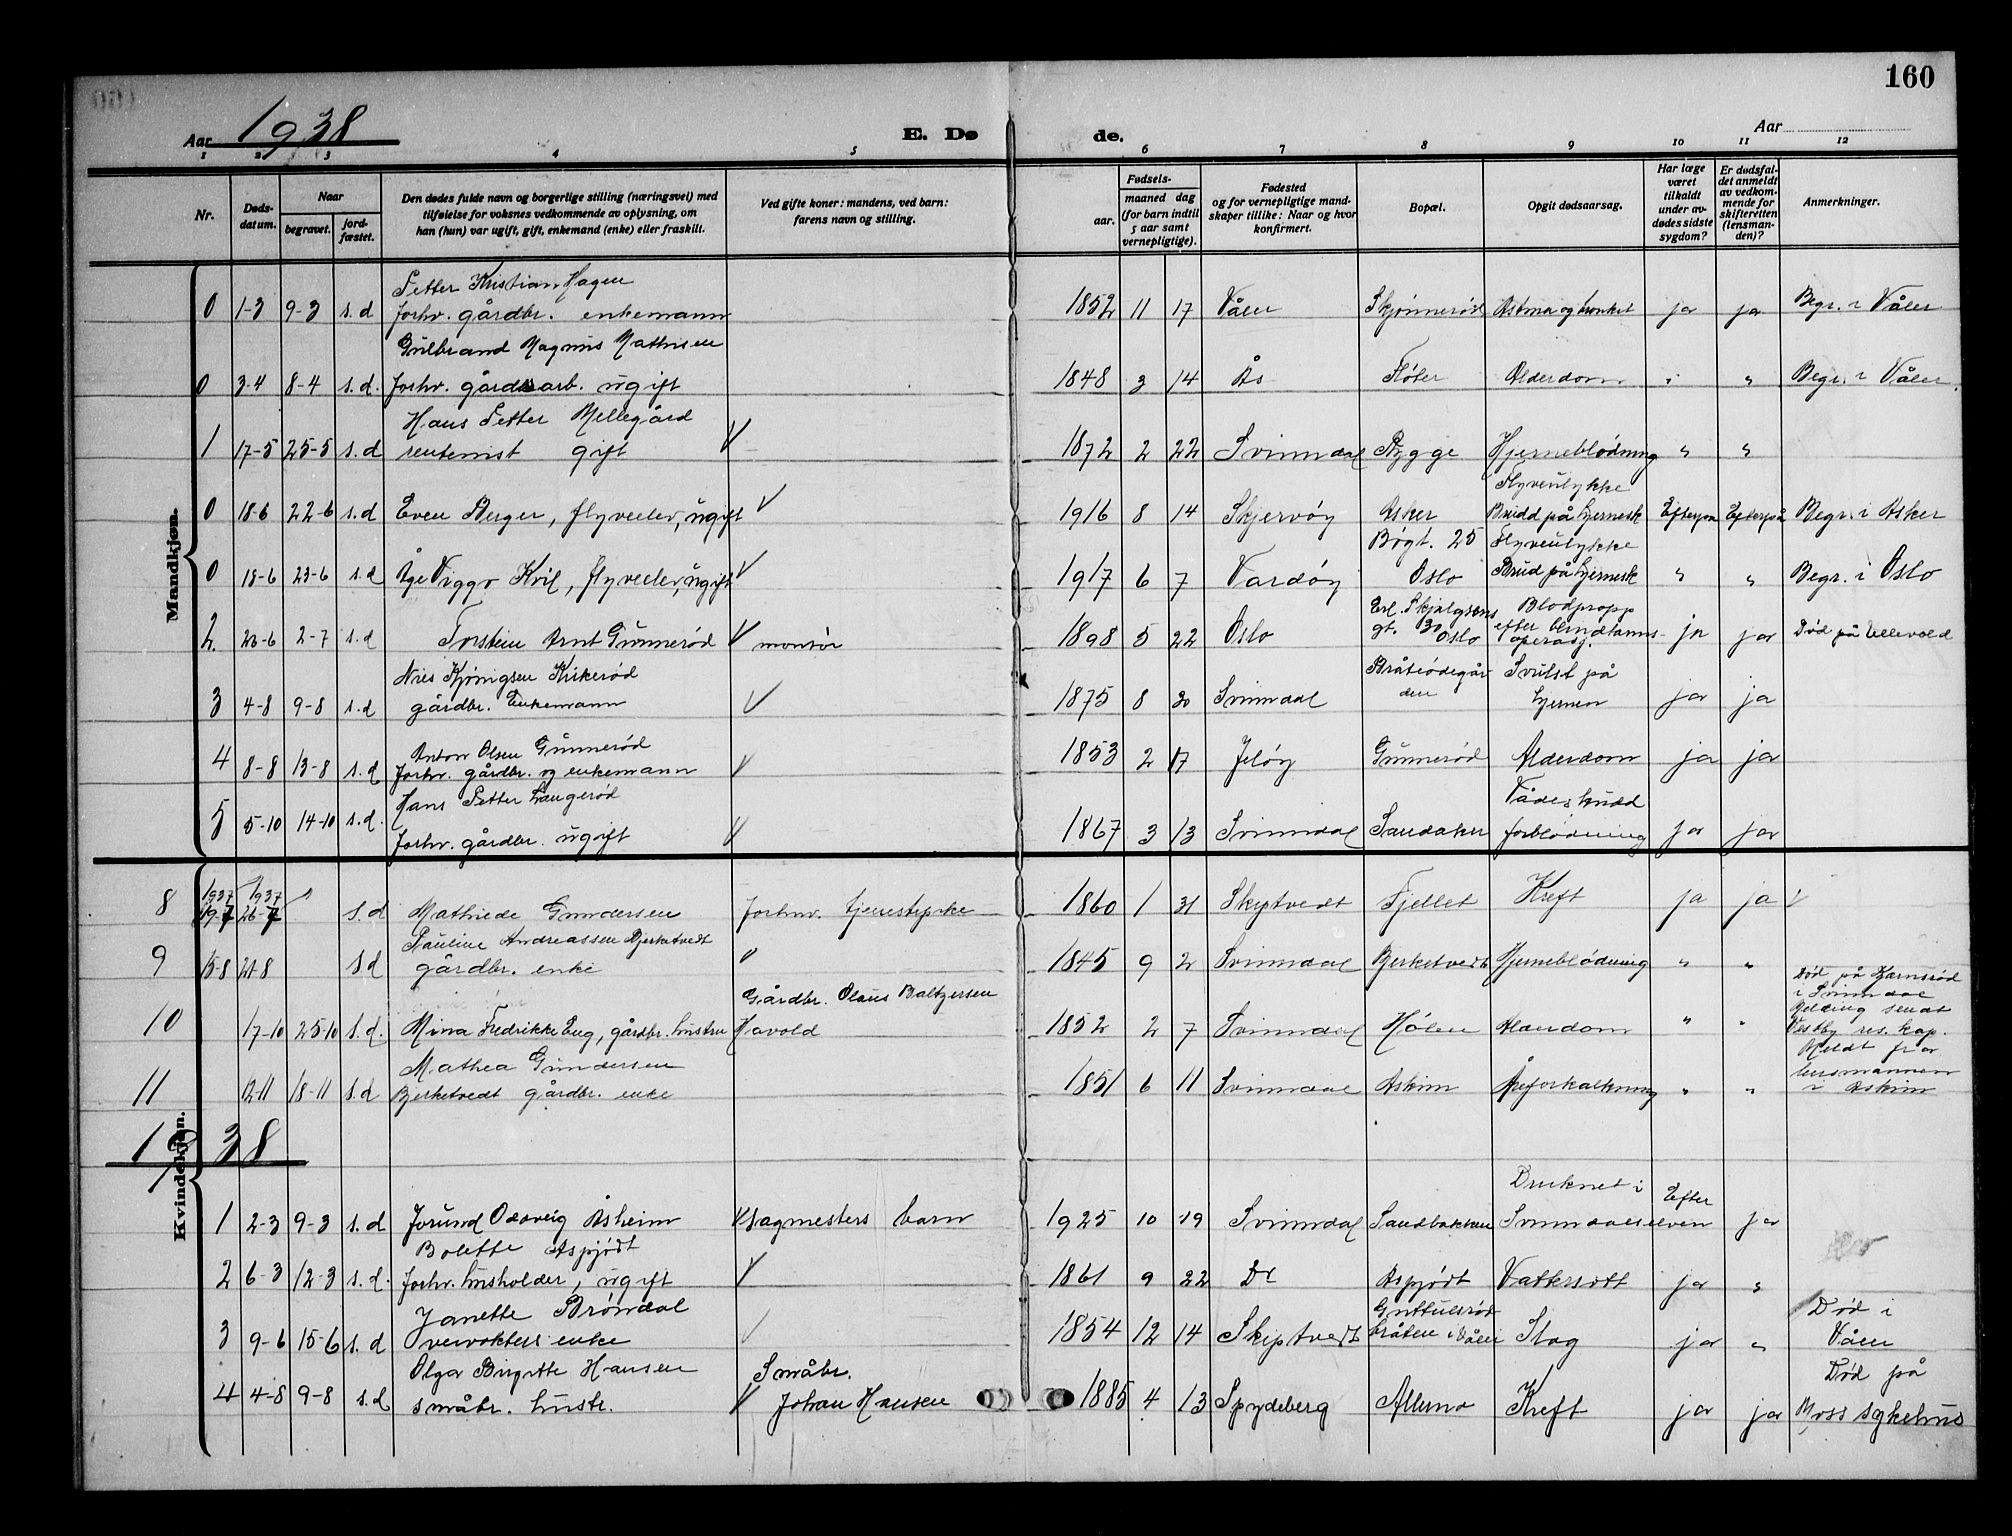 160
Aar 1938
E. Dø de.
Aar
1 2 3 4 5 6 7 8 9 10 11 12
Nr.
Døds-
datum.
Naar
begravet.
jord-
fæstet.
Den dødes fulde navn og borgerlige stilling (næringsvei) med
tilføielse for voksnes vedkommende av oplysning, om
han (hun) var ugift, gift, enkemand (enke) eller fraskilt.
Ved gifte koner: mandens, ved barn:
farens navn og stilling.
Fødsels-
aar.
maaned dag
(for barn indtil
5 aar samt
vernepligtige).
Fødested
og for vernepligtige mand-
skaper tillike: Naar og hvor
konfirmert.
Bopæl.
Opgit dødsaarsag.
Har læge
været
tilkaldt
under av-
dødes sidste
sygdom?
Er dødsfal-
det anmeldt
av vedkom-
mende for
skifteretten
(lensman-
den)?
Anmerkninger.
Mandkjøn.
Petter Kristian Hagen
0 1-3 9-3 s.d forhv. gårdbr. enkemann 1852 11 17 Våler Skjønnerød Astma og bronkit ja ja Begr. i Våler
Gulbrand Magnus Mathisen
0 3-4 8-4 s.d. forhv. gårdsarb. ugift 1848 3 14 Ås Fløter Alderdom " " Begr. i Våler.
Hans Petter Mellegård
1 17-5 25-5 s.d rentenist gift V 1872 2 22 Svinndal Rygge Hjerneblødning " "
Flyveulykke
0 18-6 22-6 s.d Even Berger, flyveelev, ugift V 1916 8 14 Skjervøy Asker Brudd på hjernesk Efterpå Efterpå Begr. i Asker
Bogt. 25 Flyveulykke
0 18-6 23-6 s.d Åge Viggo Kvil, flyveelev, ugift V 1917 6 7 Vardøy Oslo Brud på hjernesk " " Begr. i Oslo
Erl. Skjalgsons Blodpropp
gt. 30 efter blindtarms-
2. 23-6 2-7 s.d Torstein Arnt Gunnerød V montør 1898 5 22 Oslo Oslo operasj. ja ja Død på Ullevold
Nils Kjønigsen Kirkerød Bråterødegår- Svulst på
3 4-8 9-8 s.d gårdbr. Enkemann V 1875 8 30 Svinndal den hjernen ja ja
Anton Olsen Gunnerød
4 8-8 13-8 s.d forhv. gårdbr. og enkemann V 1853 2 17 Jeløy Gunnerød Alderdom ja ja
Hans Petter Haugerød Vådeskudd
5 5-10 14-10 s.d. forhv. gårdbr. ugift V 1867 3 13 Svinndal Sandaker forblødning ja ja
1937 1937
8 19-7 26-7 " s.d Mathilde Gundersen forhv. tjenestepike 1860 1 31 Skiptvedt Fjellet Kreft ja ja
Pauline Andreassen Bjerketvedt
9 15-8 21-8 s.d gårdbr. enke " 1845 9 2 Svinndal Bjerketvedt Hjerneblødning " "
Død på Kornsrød
i Svinndal
Gårdbr. Olaus Baltzersen Melding sendt
10 17-10 25-10 s.d. Mina Fredrikke Eng, gårdbr. hustru Havold 1852 2 7 Svinndal Hølen Alderdom " " Vestby res. kap.
Mathea Gundersen Meldt fra
lensmannen
11 12-11 18-11 s.d Bjerketvedt gårdbr. enke 1851 6 11 Svinndal Askim Åreforkalkning " " i Askim
Kvindekjøn.
1938
Druknet i Efter
1 2-3 9-3 s.d Jorund Oddveig Åsheim V Sagmesters barn 1925 10 19 Svinndal Sandbakken Svinndalselven ja
Bolette Aspjødt
2 6-3 12-3 s.d. forhv. husholder, ugift V 1861 9 22 Do Aspjødt Vattersott ja "
Janette Brøndal Guttulsrød Død i
3 9-6 15-6 s.d veivokters enke V 1854 12 14 Skiptvedt bråten i Våler Slag ja " Våler
Olga Birgitte Hansen Småbr. Død på
4 4-8 9-8 s.d småbr. hustr. V Johan Hansen 1885 4 13 Spydeberg Allemo Kreft ja ja Moss sykehus